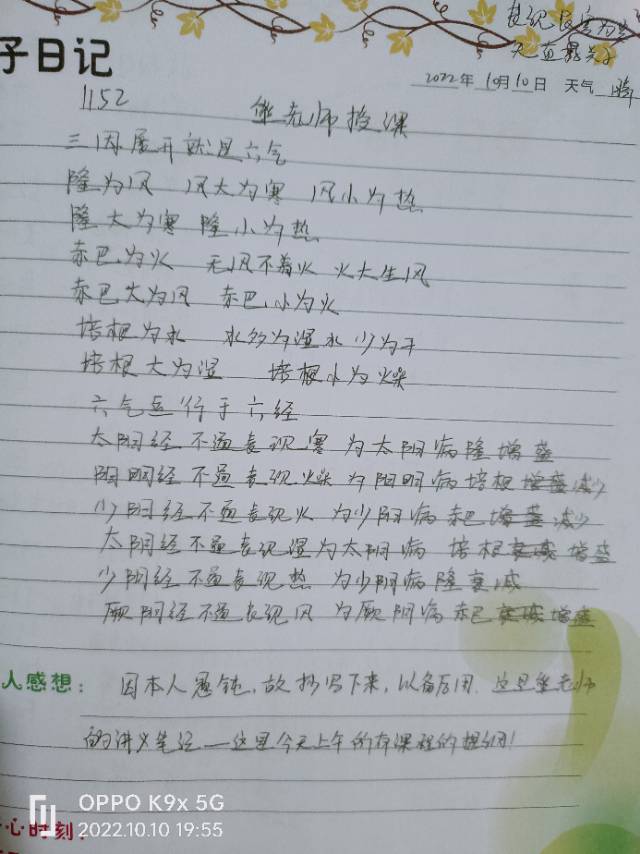 子日记
2022年 10月10日 天气 晴
1152 熊老师授课
三因展开就是六气
隆为风 风大为寒 风小为热
隆大为寒 隆小为热
赤巴为火 无风不着火 火大生风
赤巴大为风 赤巴小为火
培根为水 水多为湿水少为干
培根大为湿 培根小为燥
六气运行于六经
太阳经不通表现寒 为太阳病隆增盛
阳明经不通表现燥 为阳明病培根增盛减少
少阳经不通表现火 为少阳病赤巴增盛减少
太阴经不通表现湿为太阴病 培根衰减增盛
少阴经不通表现热 为少阴病隆衰减
厥阴经不通表现风 为厥阴病赤巴衰减增盛
人感想： 因本人愚钝，故抄写下来，以备后用。这是熊老师
的讲义笔记——这是今天上午的所有课程的提纲！
心时刻：
OPPO K9x 5G
2022.10.10 19:55